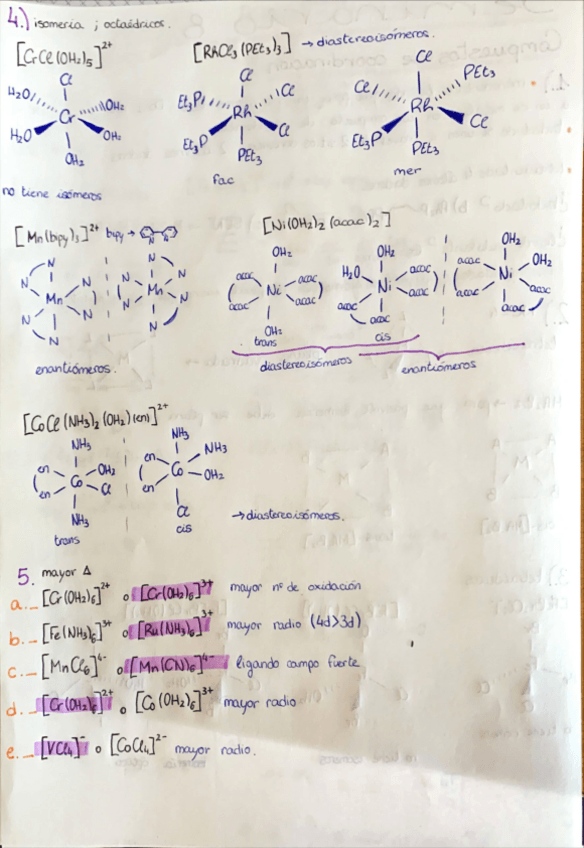 4.) isomeria ; octaédricos.
[CrCl(OH₂)₅]²⁺
[RhCl₃(PEt₃)₃] → diastereoisómeros.
Cl
H₂O
OH₂
Cr
H₂O
OH₂
OH₂
no tiene isómeros
Cl
Et₃P
Cl
Rh
Et₃P
Cl
PEt₃
fac
Cl
Cl
PEt₃
Rh
Et₃P
Cl
PEt₃
mer
[Mn(bipy)₃]²⁺ bipy →
N N
N N
N Mn N
N N
N N
N Mn N
N N
enantiómeros.
[Ni(OH₂)₂ (acac)₂]
OH₂
acac acac
Ni
acac acac
OH₂
trans
OH₂
H₂O acac
Ni
acac acac
acac
cis
OH₂
acac OH₂
Ni
acac acac
acac
diastereoisómeros
enantiómeros
[CoCl(NH₃)₂(OH₂)(en)]²⁺
NH₃
en OH₂
Co
en Cl
NH₃
trans
NH₃
en NH₃
Co
en OH₂
Cl
cis
→ diastereoisómeros.
5. mayor Δ
a._ [Cr(OH₂)₆]²⁺ o [Cr(OH₂)₆]³⁺ mayor nº de oxidación
b._ [Fe(NH₃)₆]³⁺ o [Ru(NH₃)₆]³⁺ mayor radio (4d>3d)
c._ [MnCl₆]⁴⁻ o [Mn(CN)₆]⁴⁻ ligando campo fuerte
d._ [Cr(OH₂)₆]²⁺ o [Co(OH₂)₆]³⁺ mayor radio
e._ [VCl₄]⁻ o [CoCl₄]²⁻ mayor radio.